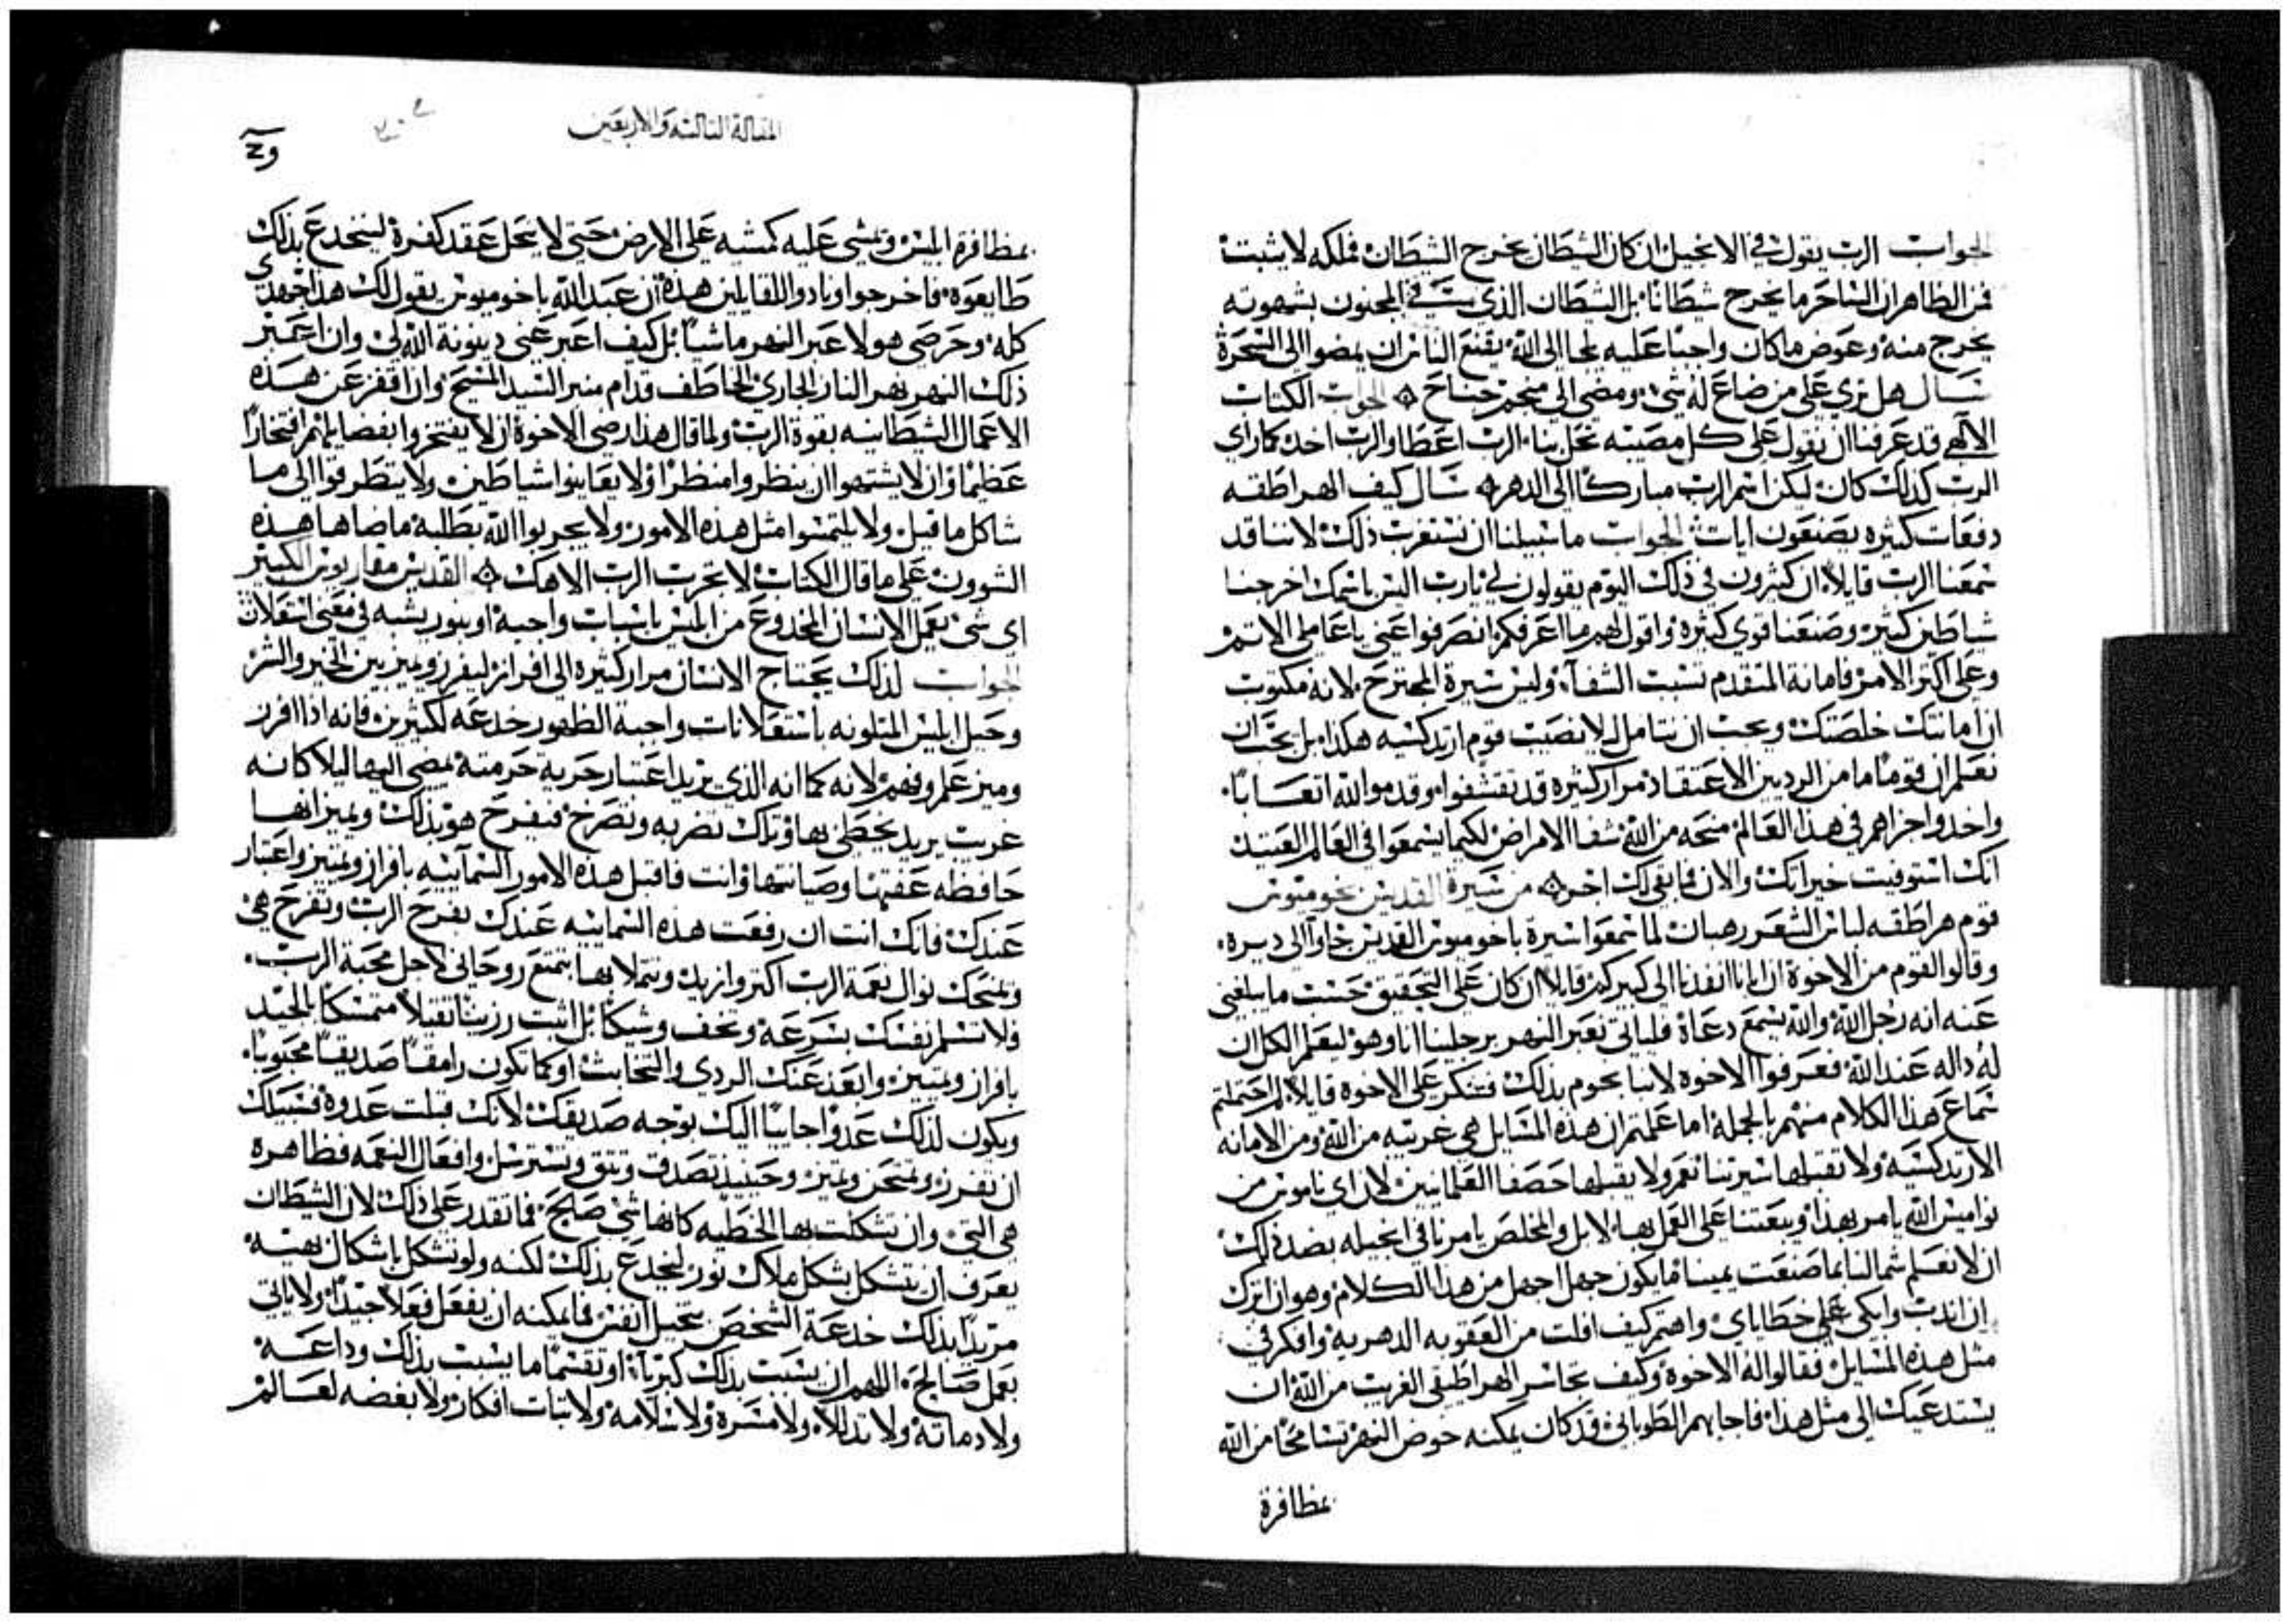 الجواب الرب يقول في الانجيل ان كان الشيطان يخرج الشيطان فملكه لا يثبت
فمن الظاهر ان الساحر ما يخرج شيطانا بل الشيطان الذي في المجنون بشهوته
يخرج منه وعوض ما كان واجبا عليه يلجا الى الله يقنع الناس ان يمضوا الى السحرة
سال هل تري على من ضاع له شي ومضى الى منجم جناح الجواب الكتاب
الالهي قد عرفنا ان نقول على كل مصيبه تحل بنا الرب اعطا والرب اخد كما راي
الرب كدلك كان ليكن اسم الرب مباركا الى الدهر سال كيف الهراطقه
دفعات كثيره يصنعون ايات الجواب ما سبيلنا ان نستغرب ذلك لاننا قد
سمعنا الرب قايلا ان كثيرون في ذلك اليوم يقولون لي يارب اليس باسمك اخرجنا
شياطين كثير وصنعنا قوي كثيرة واقول لهم ما اعرفكم انصرفوا عني يا عاملي الاتم
وعلى اكتر الامر فامانة المتقدم تسبب الشفآء وليس سيرة المجترح لانه مكتوب
ان امانتك خلصتك ويجب ان نتامل ليلا نصيب قوم ارتدكسيه هكذا بل يجب ان
نعلم ان قوما ما من الرديين الاعتقاد مرار كثيرة قد تقشفوا وقدموا لله اتعابا
واخدوا اجزاهم في هذا العالم منحه من الله شفا الامراض لكيما يسمعوا في العالم العتيد
انك استوفيت خيراتك والان فما بقي لك اخر من سيرة القديس بخوميوس
قوم هراطقه لباس الشعر رهبان لما سمعوا سيرة باخوميوس القديس جاوآ الى ديره
وقالوا لقوم من الاخوة ان ابانا انفدنا الى كبيركم قايلا ان كان على التحقيق حسب ما يبلغني
عنه انه رجل الله والله يسمع دعاه فلياتي نعبر النهر برجلينا انا وهو ليعلم الكل ان
له داله عند الله فعرفوا الاخوه لانبا بخوم بدلك فتنكر على الاخوه قايلا لم احتملتم
سماع هذا الكلام منهم بالجملة اما علمتم ان هذه المسايل هي غريبه من الله ومن الامانه
الارتدكسيه ولا تقبلها سيرتنا نعم ولا يقبلها حصفا العلمانيين لان اي ناموس من
نواميس الله يامر بهذا ويبعتنا على العمل بها لا بل والمخلص يامرنا في انجيله بضد ذلك
ان لا تعلم شمالنا بما صنعت يميننا فما يكون جهل اجهل من هذا الكلام وهو ان اترك
ان اندب وابكي على خطاياي واهتم كيف افلت من العقوبه الدهريه وافكر في
مثل هذه المسايل فقالوا له الاخوة وكيف تجاسر الهراطيقي الغريب من الله ان
يستدعيك الى مثل هذا فاجابهم الطوباني قد كان يمكنه خوض النهر تسامحا من الله
بمظافرة
المقالة التالته والاربعين
بمظافرة ابليس ويمشي عليه كمشيه على الارض حتى لا يحل عقد كفرة لينخدع بذلك
طايعوه فاخرجوا ونادوا للقايلين هذه ان عبد الله باخوميوس يقول لك هذا جهدي
كله وحرصي هو لا عبر النهر ماشيا بل كيف اعبر عني دينونة الله لي وان اعبر
ذلك النهر نهر النار الجاري الخاطف قدام منبر السيد المسيح وان اقفز عن هذه
الاعمال الشيطانيه بقوة الرب ولما قال هذا رضي الاخوة ان لا يفتخروا بفضايلهم افتخارا
عظيما وان لا يشتهوا ان ينظروا منظرا ولا يعاينوا شياطين ولا يتطرقوا الى ما
شاكل ما قيل ولا يلتمسوا مثل هذه الامور ولا يجربوا الله بطلبة ما ضاهاها هذه
الشوون على ما قال الكتاب لا تجرب الرب الاهك القديس مقاريوس الكبير
اي شي يعمل الانسان المخدوع من ابليس باسباب واجبة او بنور يشبه في معنى اشتعلان
الجواب لذلك يحتاج الانسان مرار كثيره الى افراز ليفرز ويميز بين الخير والشر
وحيل ابليس المتلونه باستعلانات واجبة الظهور خدعه لكثيرين فانه اذا افرز
وميز علم وفهم لانه كما انه الذي يريد اعتبار حرية حرمته يمضي اليها ليلا كانه
غريب يريد يحظى بها وتلك تضربه وتصرخ فيفرح هو بذلك ويميز انها
حافظه عفتها وصيانتها وانت فاقبل هذه الامور السمآئيه بافراز وتميز واعتبار
عندك فانك انت ان رفعت هذه السمائيه عندك تفرح الرب وتفرح هي
وتمنحك نوال نعمة الرب اكتر وازيد وتتملا بها بتمتع روحاني لاجل محبة الرب
ولا تسلم نفسك بسرعه وتخف وشيكا بل اثبت رزينا ثقيلا متمسكا بالجيد
بافراز وتميز وابعد عنك الردي والتخابث او كما تكون رامقا صديقا محبوبا
ويكون لذلك عدوا جايبا اليك بوجه صديقك لانك قبلت عدوه فسبيلك
ان تفرز وتمتحن وتميز وحينيذ تصدق وتثق وتسترسل وافعال النعمه فظاهره
هي التي وان تشكلت بها الخطيه كانها شي صالح فما تقدر على ذلك لان الشيطان
يعرف ان يتشكل بشكل ملاك نور ليخدع بذلك لكنه ولو تشكل باشكال بهيه
مريدا بذلك خدعة الشخص بتحيل النفس فما يمكنه ان يفعل فعلا جيدا ولا ياتي
بعمل صالح اللهم ان يسبب بذلك كبريآء او تقسما ما يسبب بذلك وداعه
ولا دماثة ولا تداللا ولا مسرة ولا سلامه ولا تبات افكار ولا بغضه لعالم